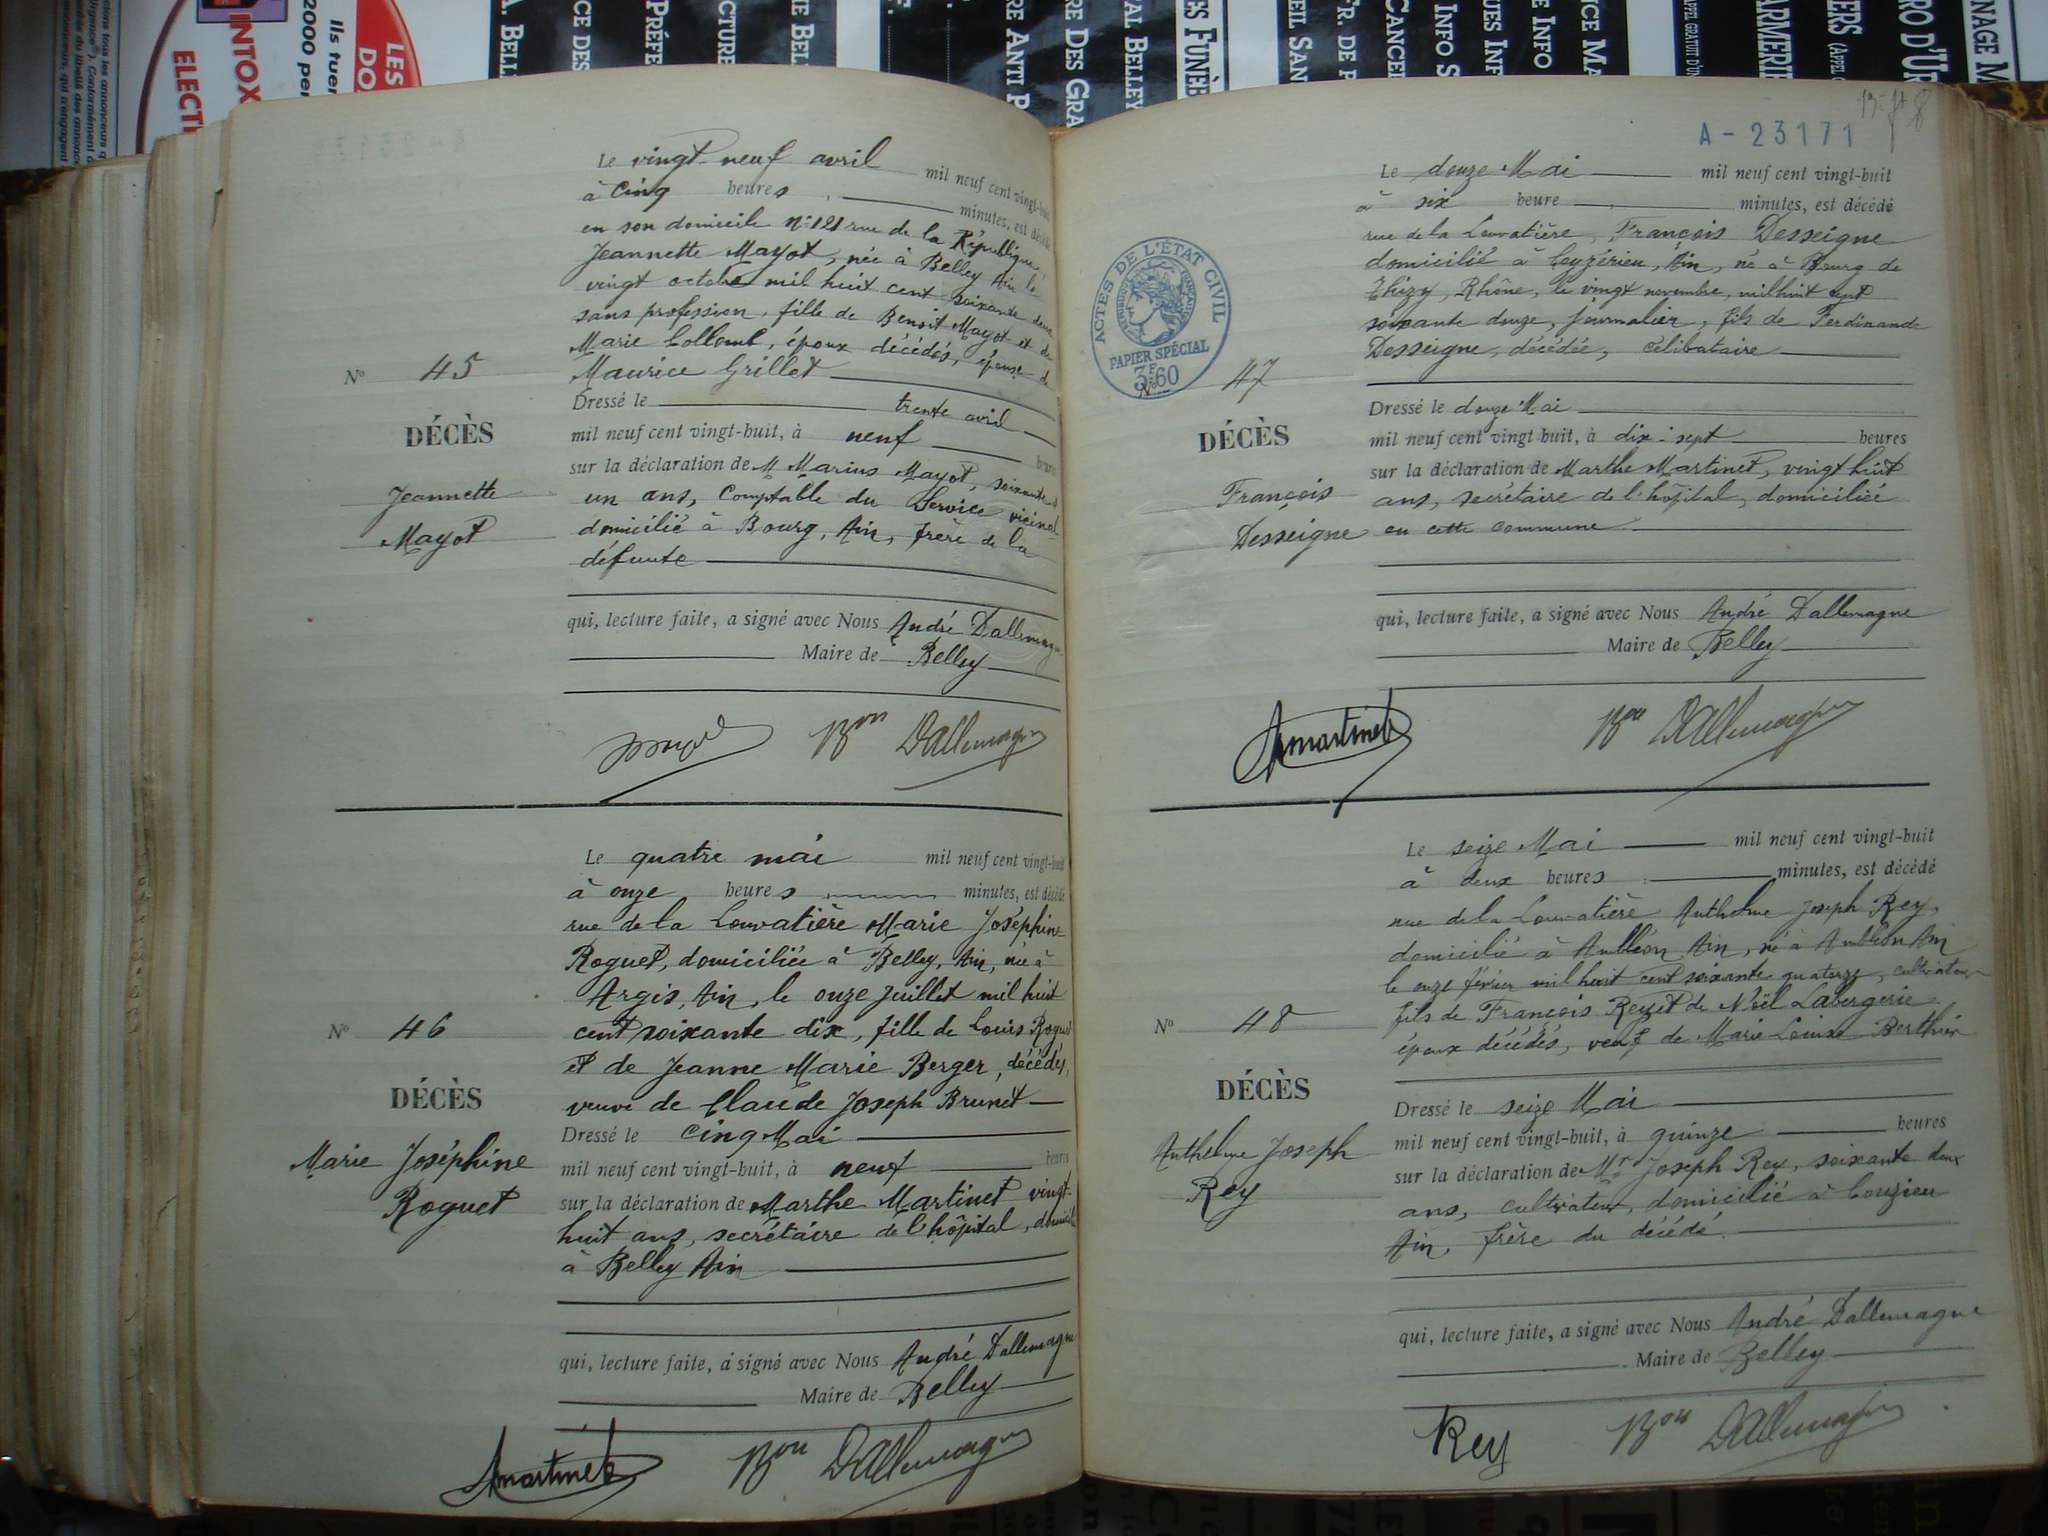 LES
DO
INTOX
ELECTI
Ils tuer
2000 per
A. BELL
CE DES
PRÉFE
CTURE
IE BEL
RE ANTI P
RE DES GRA
VAL BELLEY
ES FUNÈB
EIL SAN
R. DE P
CANCER
INFO S
UES IN
E INFO
ICE MA
ARMERIE
IERS (APPEL
RO D'UR
NAGE M
Le vingt-neuf avril mil neuf cent vingt-huit
à cinq heures minutes, est décédé
en son domicile n° 121 rue de la République
Jeannette Mayot, née à Belley Ain le
vingt octobre mil huit cent soixante deux
sans profession, fille de Benoît Mayot et de
Marie Collomb, époux décédés, épouse de
Maurice Grillet
N° 45
DÉCÈS
Jeannette
Mayot
Dressé le trente avril
mil neuf cent vingt-huit, à neuf heures
sur la déclaration de M Marius Mayot, soixante et
un ans, Comptable du Service vicinal
domicilié à Bourg, Ain, frère de la
défunte
qui, lecture faite, a signé avec Nous André Dallemagne
Maire de Belley
Bon Dallemagne
Le quatre mai mil neuf cent vingt-huit
à onze heures minutes, est décédé
rue de la Louvatière Marie Joséphine
Roguet, domiciliée à Belley, Ain, née à
Argis, Ain, le onze juillet mil huit
cent soixante dix, fille de Louis Roguet
et de Jeanne Marie Berger, décédés,
veuve de Claude Joseph Brunet
N° 46
DÉCÈS
Marie Joséphine
Roguet
Dressé le cinq Mai
mil neuf cent vingt-huit, à neuf heures
sur la déclaration de Marthe Martinet vingt-
huit ans, secrétaire de l'hôpital, domiciliée
à Belley Ain
qui, lecture faite, a signé avec Nous André Dallemagne
Maire de Belley
Martinet Bon Dallemagne
A-23171
ACTES DE L'ETAT CIVIL
PAPIER SPÉCIAL
3F60
Le douze Mai mil neuf cent vingt-huit
à six heure minutes, est décédé
rue de la Louvatière, François Desseigne
domicilié à Ceyzérieu, Ain, né à Bourg de
Thizy, Rhône, le vingt novembre, mil huit cent
soixante douze, journalier, fils de Ferdinande
Desseigne, décédée, célibataire
N° 47
DÉCÈS
François
Desseigne
Dressé le douze Mai
mil neuf cent vingt-huit, à dix-sept heures
sur la déclaration de Marthe Martinet, vingt huit
ans, secrétaire de l'hôpital, domiciliée
en cette commune
qui, lecture faite, a signé avec Nous André Dallemagne
Maire de Belley
Martinet Bon Dallemagne
Le seize Mai mil neuf cent vingt-huit
à deux heures minutes, est décédé
rue de la Louvatière Anthelme Joseph Rey,
domicilié à Ambléon Ain, né à Ambléon Ain
le onze février mil huit cent soixante quatorze, cultivateur
fils de François Rey et de Noël Labergerie
époux décédés, veuf de Marie Louise Berthier
N° 48
DÉCÈS
Anthelme Joseph
Rey
Dressé le seize Mai
mil neuf cent vingt-huit, à quinze heures
sur la déclaration de Mr Joseph Rey, soixante deux
ans, cultivateur, domicilié à Conzieu
Ain, frère du décédé
qui, lecture faite, a signé avec Nous André Dallemagne
Maire de Belley
Rey Bon Dallemagne